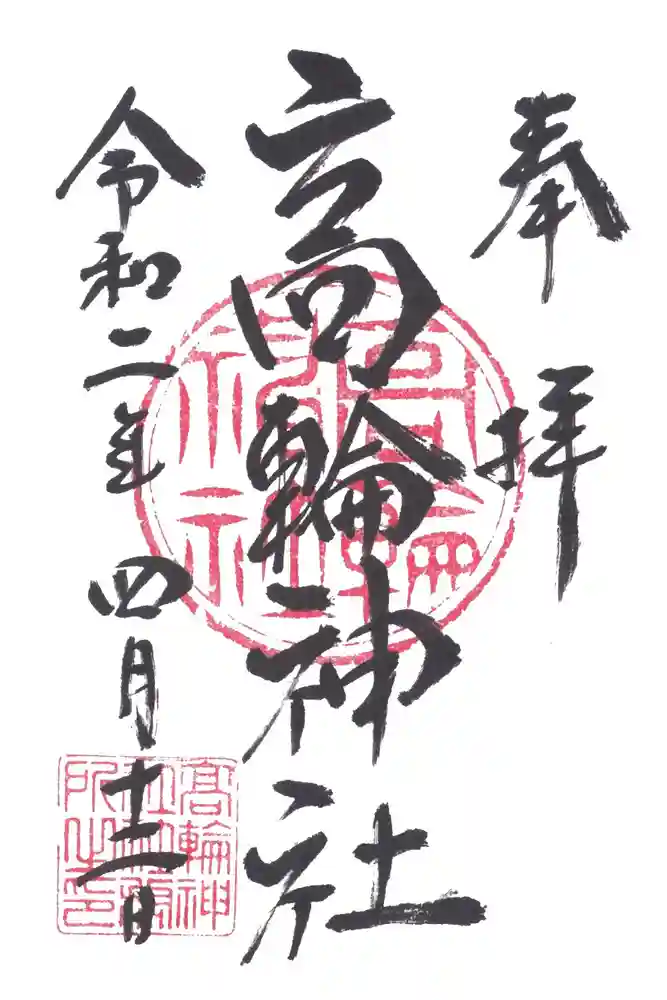 奉拝
高輪神社
令和二年四月十二日
高輪
神社
高輪神
社社務
所之印